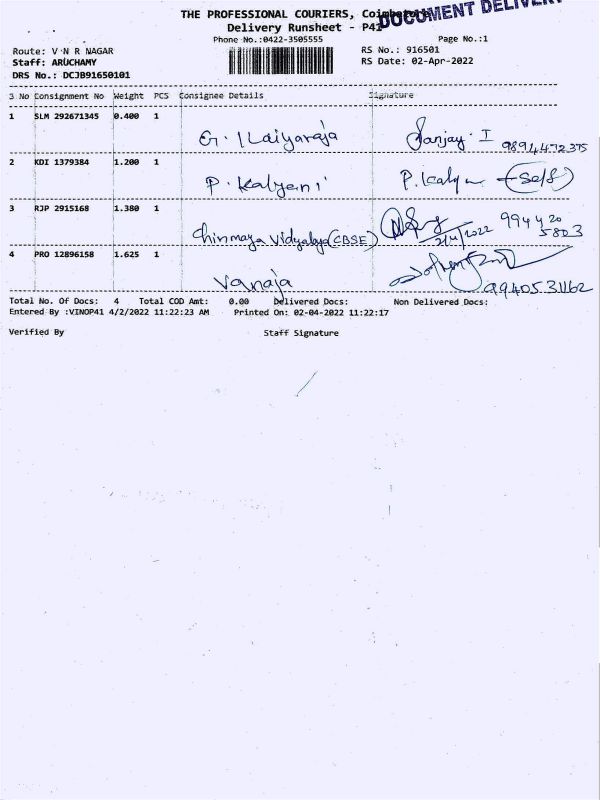 THE PROFESSIONAL COURIERS, Coimbatore
DOCUMENT DELIVERY
Delivery Runsheet - P41
Phone No.:0422-3505555
Page No.:1
Route: V N R NAGAR
RS No.: 916501
Staff: ARUCHAMY
RS Date: 02-Apr-2022
DRS No.: DCJB91650101
S No Consignment No Weight PCS Consignee Details Signature
1 SLM 292671345 0.400 1
G. ILaiyaraja Sanjay. I 9894472375
2 KDI 1379384 1.200 1
P. Kalyani P. Kalyn (Self)
3 RJP 2915168 1.380 1
Chinmaya Vidyalaya(CBSE) 2/4/2022 99442 0
5803
4 PRO 12896158 1.625 1
Vanaja 9940531162
Total No. Of Docs: 4 Total COD Amt: 0.00 Delivered Docs: Non Delivered Docs:
Entered By :VINOP41 4/2/2022 11:22:23 AM Printed On: 02-04-2022 11:22:17
Verified By Staff Signature